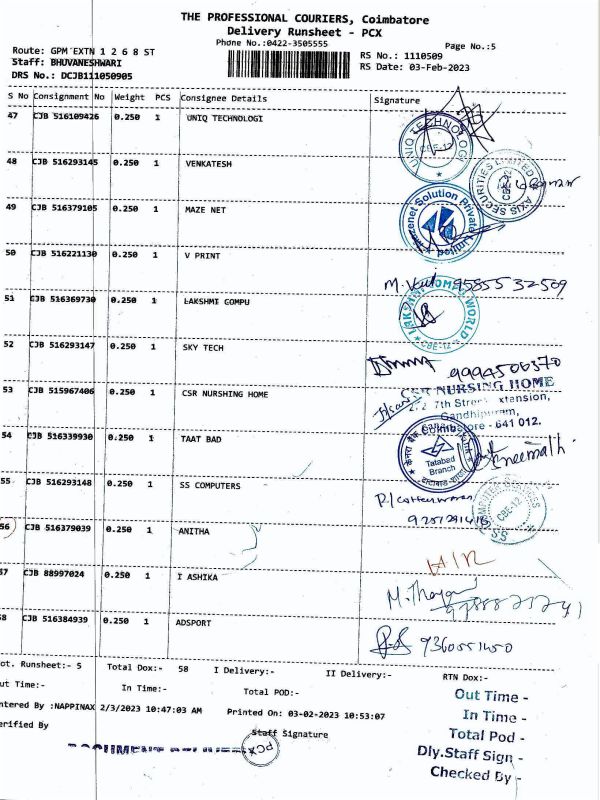 THE PROFESSIONAL COURIERS, Coimbatore
Delivery Runsheet - PCX
Phone No.:0422-3505555
Page No.:5
Route: GPM EXTN 1 2 6 8 ST
RS No.: 1110509
Staff: BHUVANESHWARI
RS Date: 03-Feb-2023
DRS No.: DCJB111050905
S No Consignment No Weight PCS Consignee Details Signature
47 CJB 516109426 0.250 1 UNIQ TECHNOLOGI
UNIQ TECHNOLOGI CBE-12
48 CJB 516293145 0.250 1 VENKATESH
AXIS SECURITIES LIMITED CBE-12
49 CJB 516379105 0.250 1 MAZE NET
Mazenet Solution Private Limited
50 CJB 516221130 0.250 1 V PRINT
M. 95855 32509
51 CJB 516369730 0.250 1 LAKSHMI COMPU
LAKSHMI COMPU WORLD CBE-12
52 CJB 516293147 0.250 1 SKY TECH
9994506370
53 CJB 515967406 0.250 1 CSR NURSHING HOME
CSR NURSING HOME
7th Street Extension,
Gandhipuram,
Coimbatore - 641 012.
54 CJB 516339930 0.250 1 TAAT BAD
Tatabed
Branch
55 CJB 516293148 0.250 1 SS COMPUTERS
CBE-12
56 CJB 516379039 0.250 1 ANITHA
57 CJB 88997024 0.250 1 I ASHIKA
58 CJB 516384939 0.250 1 ADSPORT
9360051450
ot. Runsheet:- 5 Total Dox:- 58 I Delivery:- II Delivery:- RTN Dox:-
ut Time:- In Time:- Total POD:-
ntered By :NAPPINAX 2/3/2023 10:47:03 AM Printed On: 03-02-2023 10:53:07
erified By Staff Signature
PCX
Out Time -
In Time -
Total Pod -
Dly.Staff Sign -
Checked By -